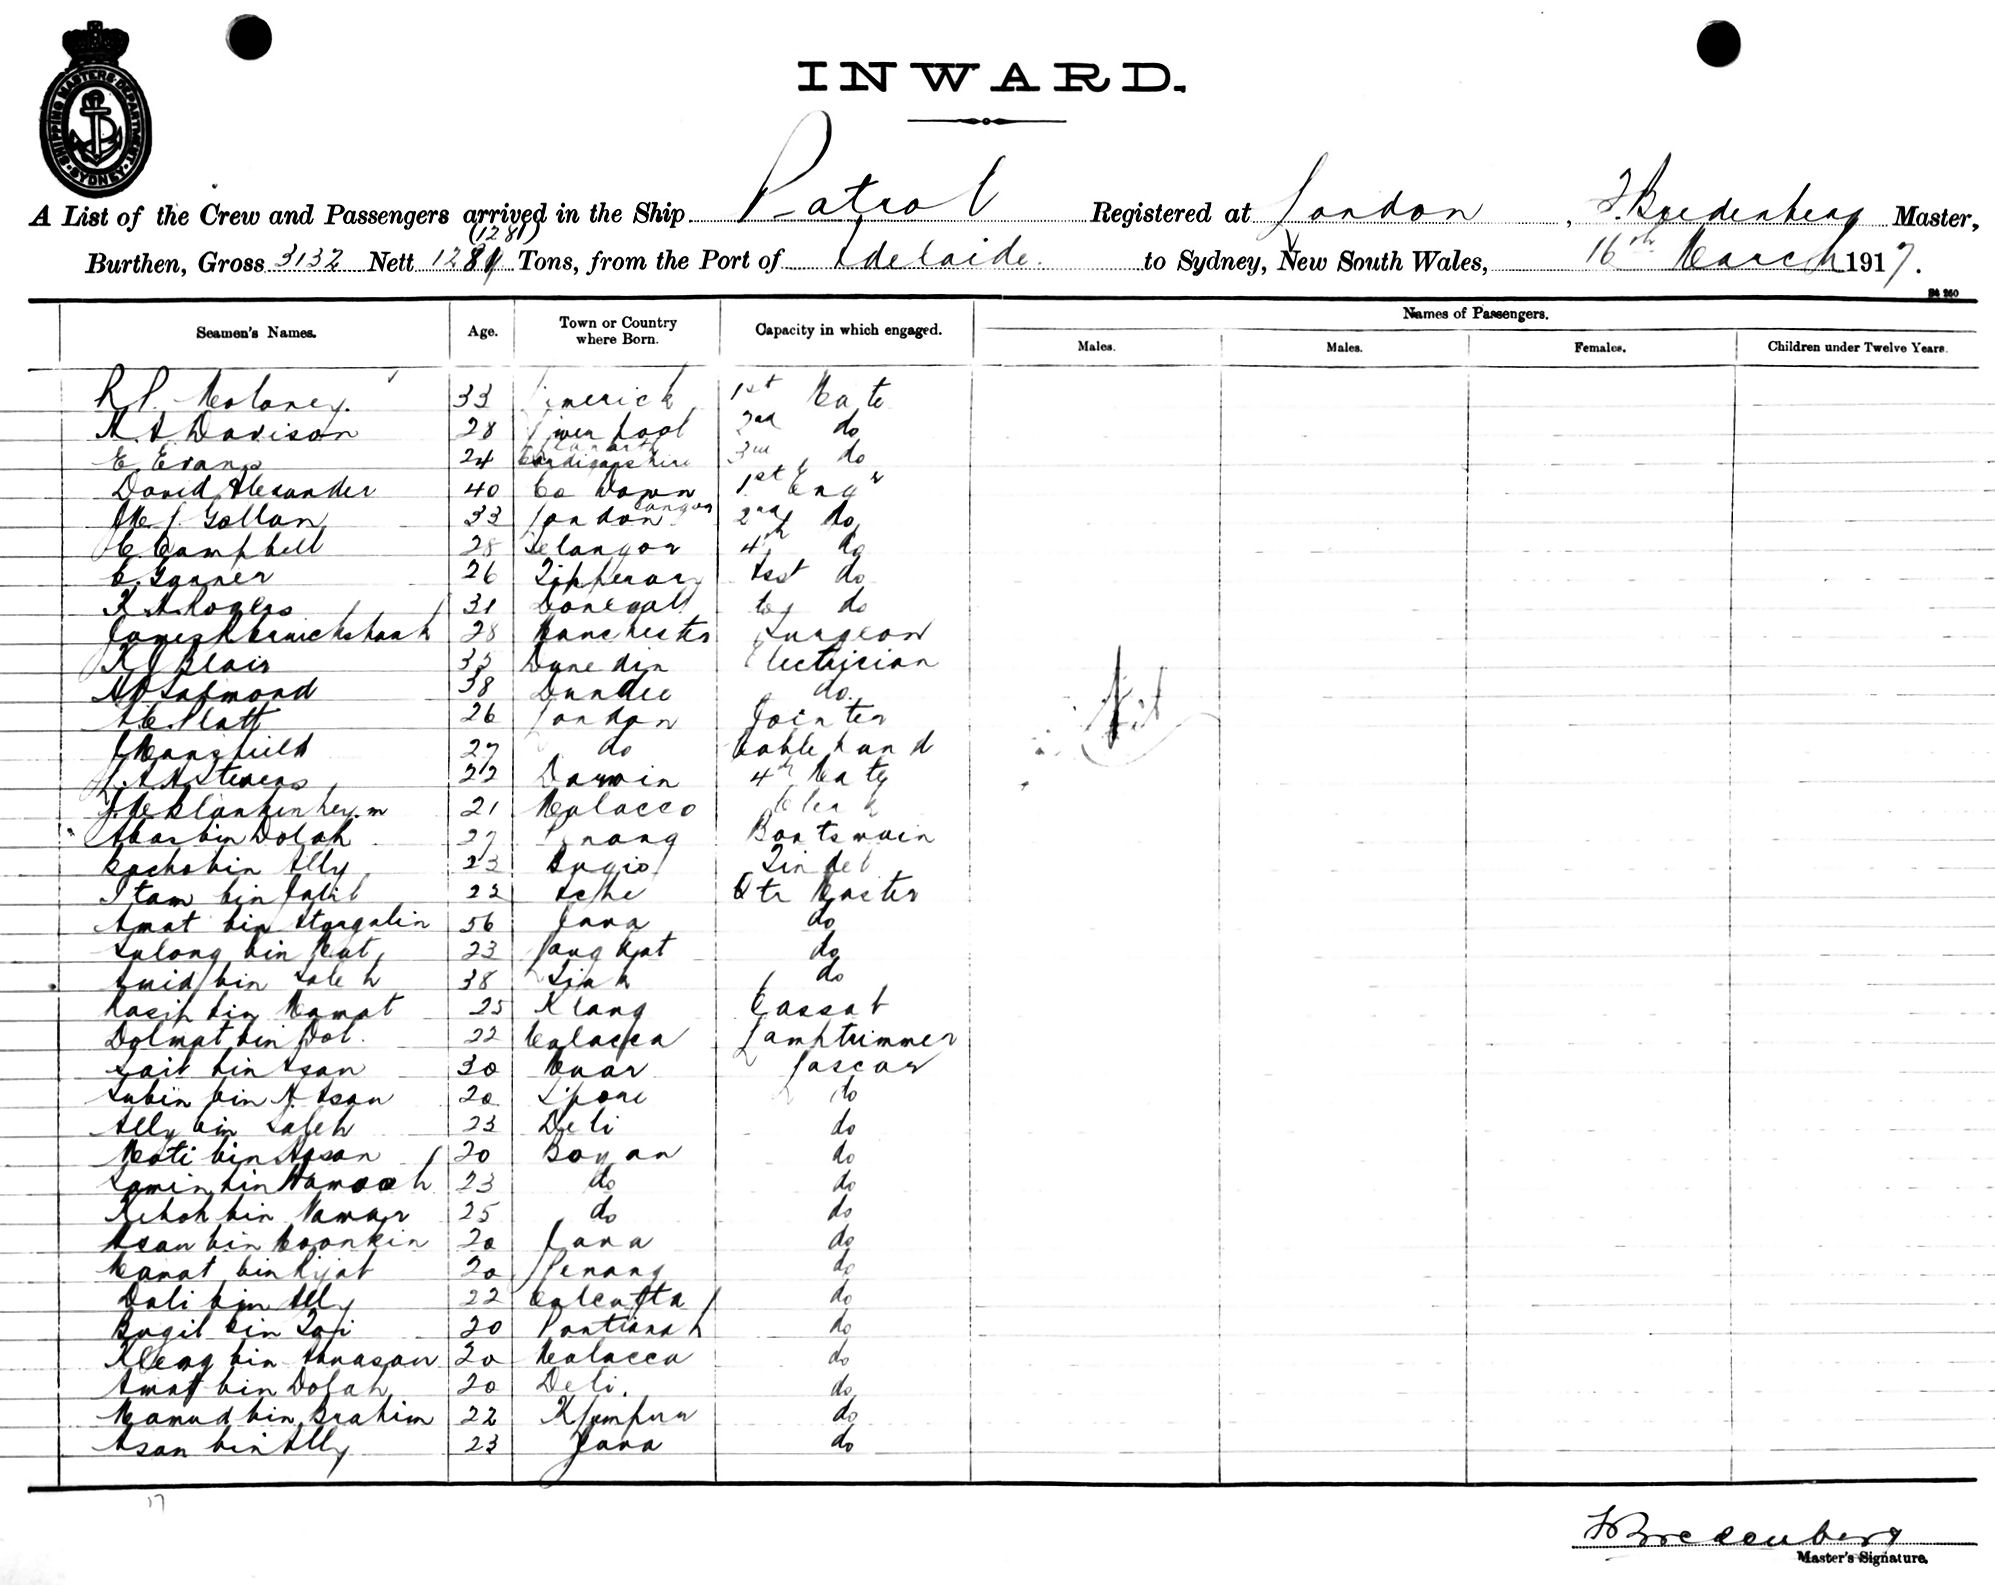 SHIPPING MASTERS DEPARTMENT SYDNEY
INWARD.
A List of the Crew and Passengers arrived in the Ship Patrol Registered at London, F. Bredenberg Master,
(1281)
Burthen, Gross 3132 Nett 1281 Tons, from the Port of Adelaide to Sydney, New South Wales, 16th March 1917.
Seamen's Names. Age. Town or Country where Born. Capacity in which engaged. Names of Passengers.
Males. Males. Females. Children under Twelve Years.
R P. Moloney. 33 Limerick 1st Mate
H. A Davison 28 Liverpool 2nd do
E Evans 24 Cardiganshire 3rd do
David Alexander 40 Co Down 1st Engr
33 London 2nd do
C Campbell 28 Selangor 4th do
26 Tipperary Asst do
K A Rogers 31 Donegall do
James R Cruickshank 28 Manchester Surgeon
K J Blair 35 Dunedin Electrician
Salmond 38 Dundee do.
A C Platt 26 London Jointer
J Mansfield 27 do Cablehand
A A Stevens 22 Darwin 4th Mate
21 Malacco Clerk
bin Dolah 27 Penang Boatswain
bin Ally 23 Bugis Tindel
Itam bin Jalil 22 Ache Qtr Master
Amat bin 56 Java do
Sulong bin Mat 23 Langkat do
bin Saleh 38 Siak do
Kasih bin Mamat 25 Klang Cassab
Dolmat bin Dol. 22 Malacca Lamptrimmer
Sait bin Asan 30 Muar Lascar
Subin bin A. Asan 20 do
Ally bin Saleh 23 Deli do
Moti bin Assan 20 Boyan do
Samin bin 23 do do
bin 25 do do
Asan bin Moonkin 20 Java do
Mamat bin Rijab 20 Penang do
Dali bin Ally 22 Calcutta do
Bagil bin 20 Pontianak do
Kleng bin 20 Malacca do
Amat bin Dolah 20 Deli. do
Mamud bin Brahim 22 do
Asan bin Ally 23 Java do
Nil
17
F Bredenberg
Master's Signature.